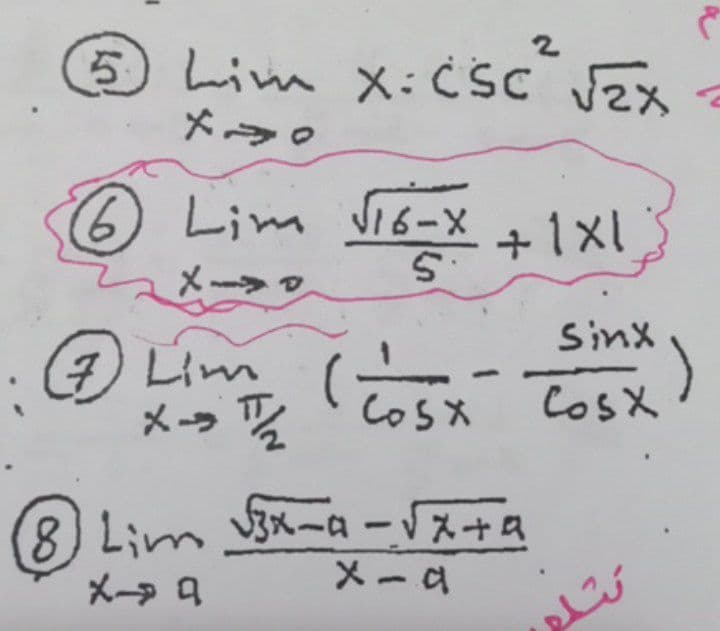 ⑤ Lim x→0 x·csc² √2x
⑥ Lim x→0 √16-x / 5 + |x|
⑦ Lim x→π/2 (1/Cosx - Sinx/Cosx)
⑧ Lim x→a √3x-a - √x+a / x-a